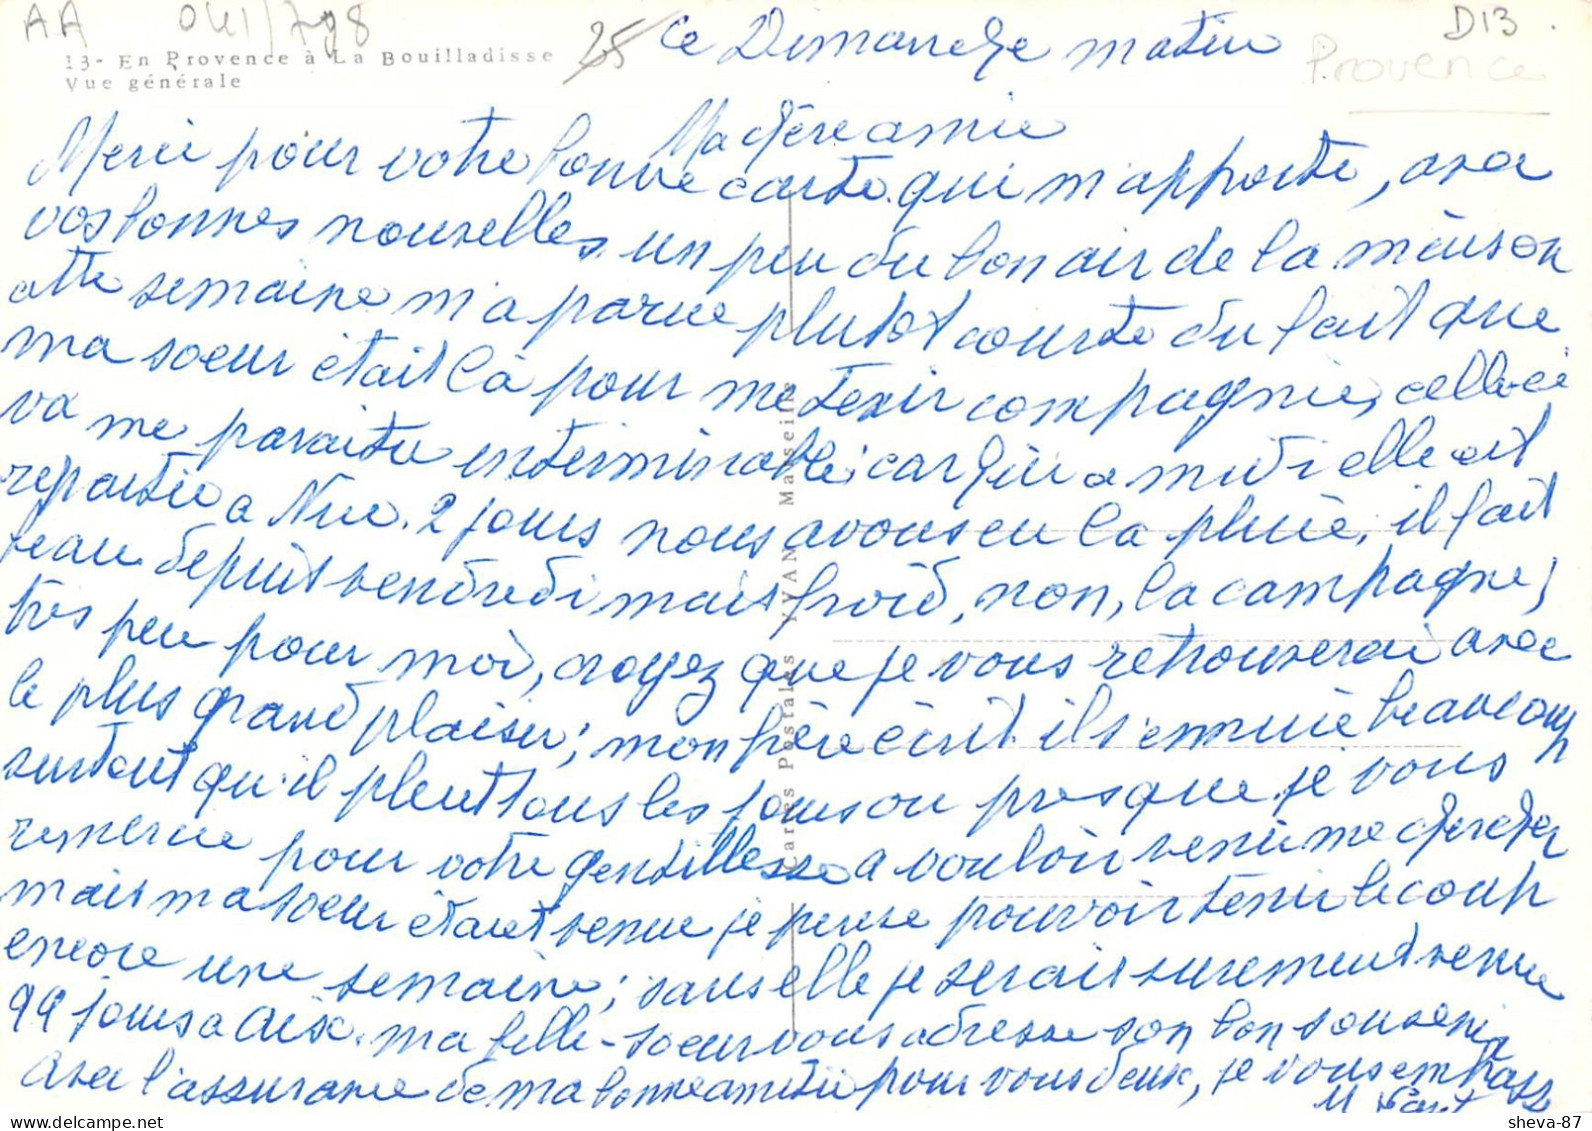 AA 041/798
13 - En Provence à La Bouilladisse
Vue générale
25
D13
Provence
Ce Dimanche matin
Ma chère amie
Merci pour votre bonne carte qui m'apporte, avec
vos bonnes nouvelles un peu du bon air de la maison
cette semaine m'a parue plutot courte du fait que
ma soeur était là pour me tenir compagnie, celle-ci
va me paraitre interminable; car hier a midi elle est
repartie a Nice. 2 jours nous avons eu la pluie, il fait
beau depuis vendredi mais froid, non, la campagne,
très peu pour moi, croyez que je vous retrouverai avec
le plus grand plaisir; mon frère écrit il s'ennuie beaucoup
surtout qu'il pleut tous les jours ou presque. je vous
remercie pour votre gentillesse a vouloir venir me chercher
mais ma soeur étant venue je pense pouvoir tenir le coup
encore une semaine; sans elle je serais surement venue
99 jours a Aix. ma belle-soeur vous adresse son bon souvenir
Avec l'assurance de ma bonne amitié pour vous deux, je vous embrasse
Cartes Postales RYAN Marseille
sheva-87